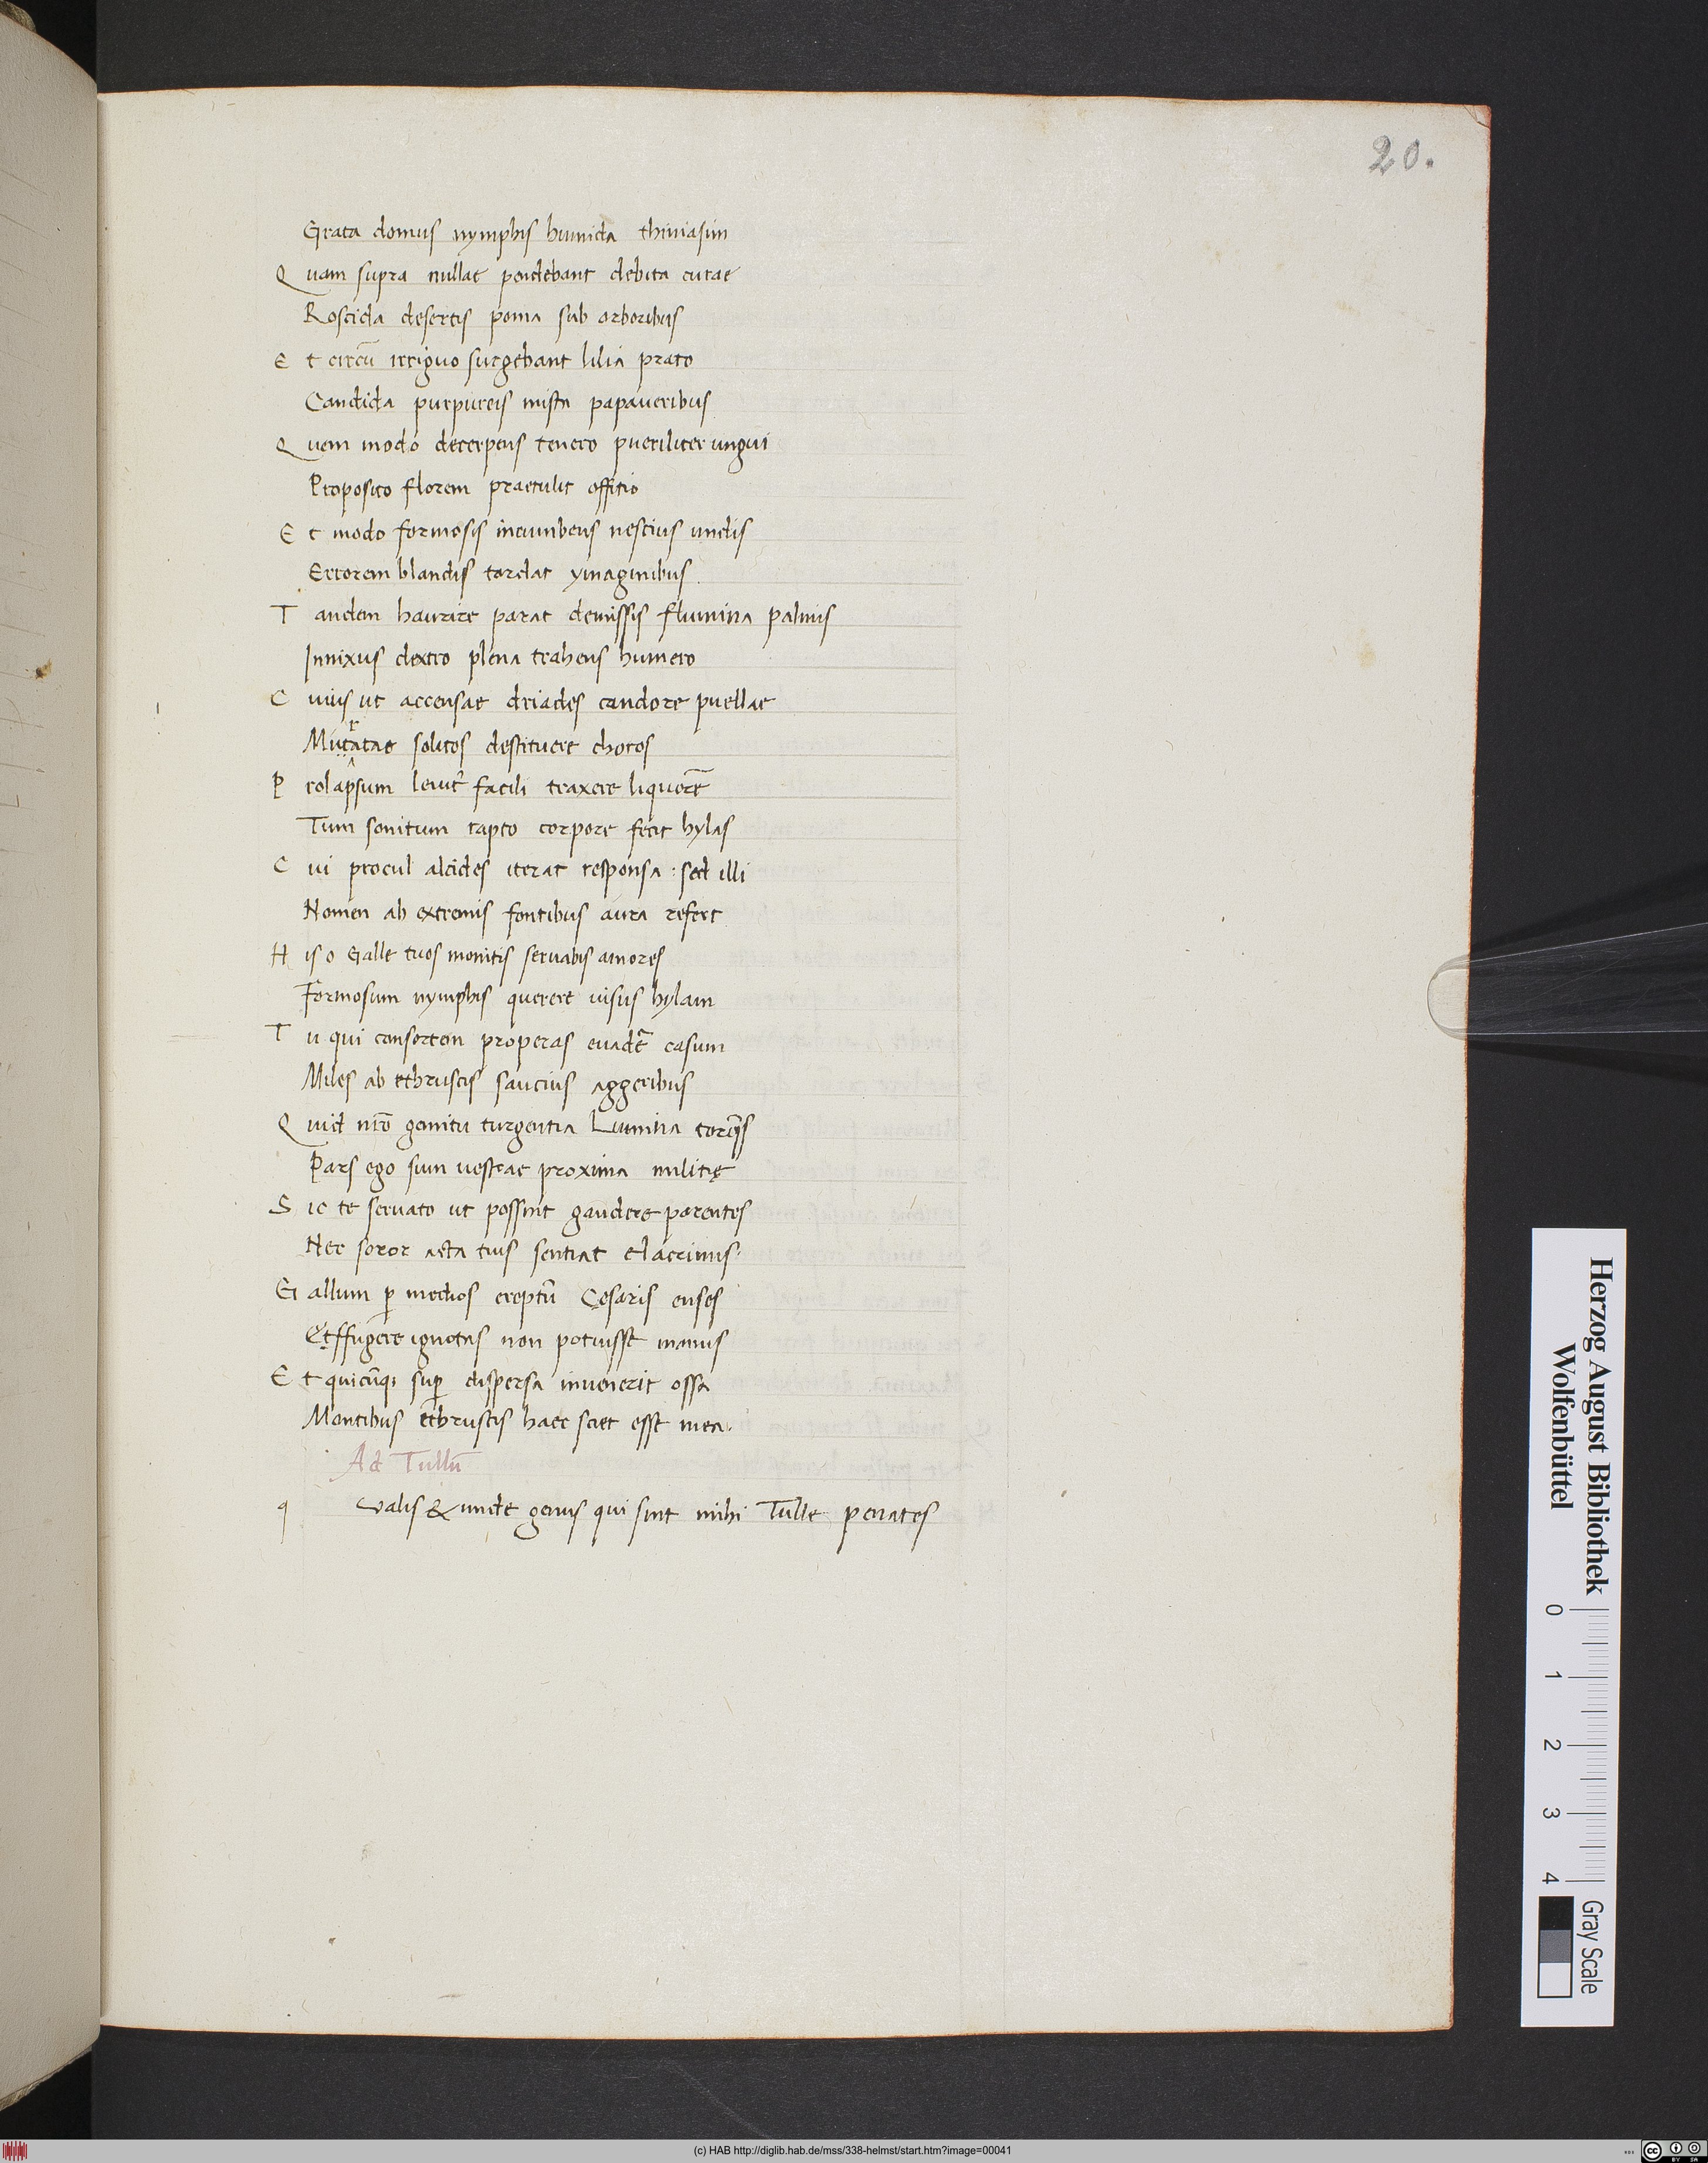 20.
Grata domus nymphis humida thiniasin
Quam supra nullae pendebant debita curae
Roscida desertis poma sub arboribus
Et circū irriguo surgebant lilia prato
Candida purpureis mista papaveribus
Quem modo decerpens tenero pueriliter ungui
Proposito florem praetulit offitio
Et modo formosis incumbens nescius undis
Errorem blandis tardat ymaginibus
Tandem haurire parat demissis flumina palmis
Innixus dextro plena trahens humero
Cuius ut accensae driades candore puellae
Mutatae solitos destituere choros
Prolapsum leuit᷑ facili traxere liquorē
Tum sonitum rapto corpore fecit hylas
Cui procul alcides iterat responsa: sed illi
Nomen ab extremis fontibus aura refert
His o Galle tuos monitis seruabis amores
Formosum nymphis querere uisus hylam
Tu qui consortem properas euadē casum
Miles ab ethruscis saucius aggeribus
Quid nr̄o gemitu turgentia Lumina torq̄s
Pars ego sum uestrae proxima militię
Sic te seruato ut possint gaudere parentes
Nec soror acta tuis sentiat elacrimis.
Gallum ꝑ medios ereptū Cesaris enses
Etffugere ignotas non potuisse manus
Et quicūq; suꝑ dispersa inuenerit ossa
Montibus ethruscis haec sciet esse mea.
Ad Tullū
qvalis & unde genus qui sint mihi Tulle penates
Herzog August Bibliothek
Wolfenbüttel
0 1 2 3 4
Gray Scale
(c) HAB http://diglib.hab.de/mss/338-helmst/start.htm?image=00041